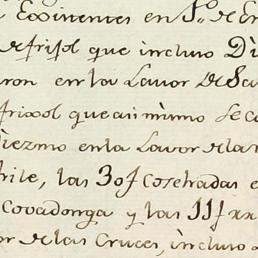 Existentes en 1.º de En
de frisol que incluso Di
ron en la Lavor de Sa
frixol que asi mismo se co
Diezmo en la Lavor de la
hile, las 30f Cosechadas e
Covadonga y las 11f xx
or de las Cruces, incluso